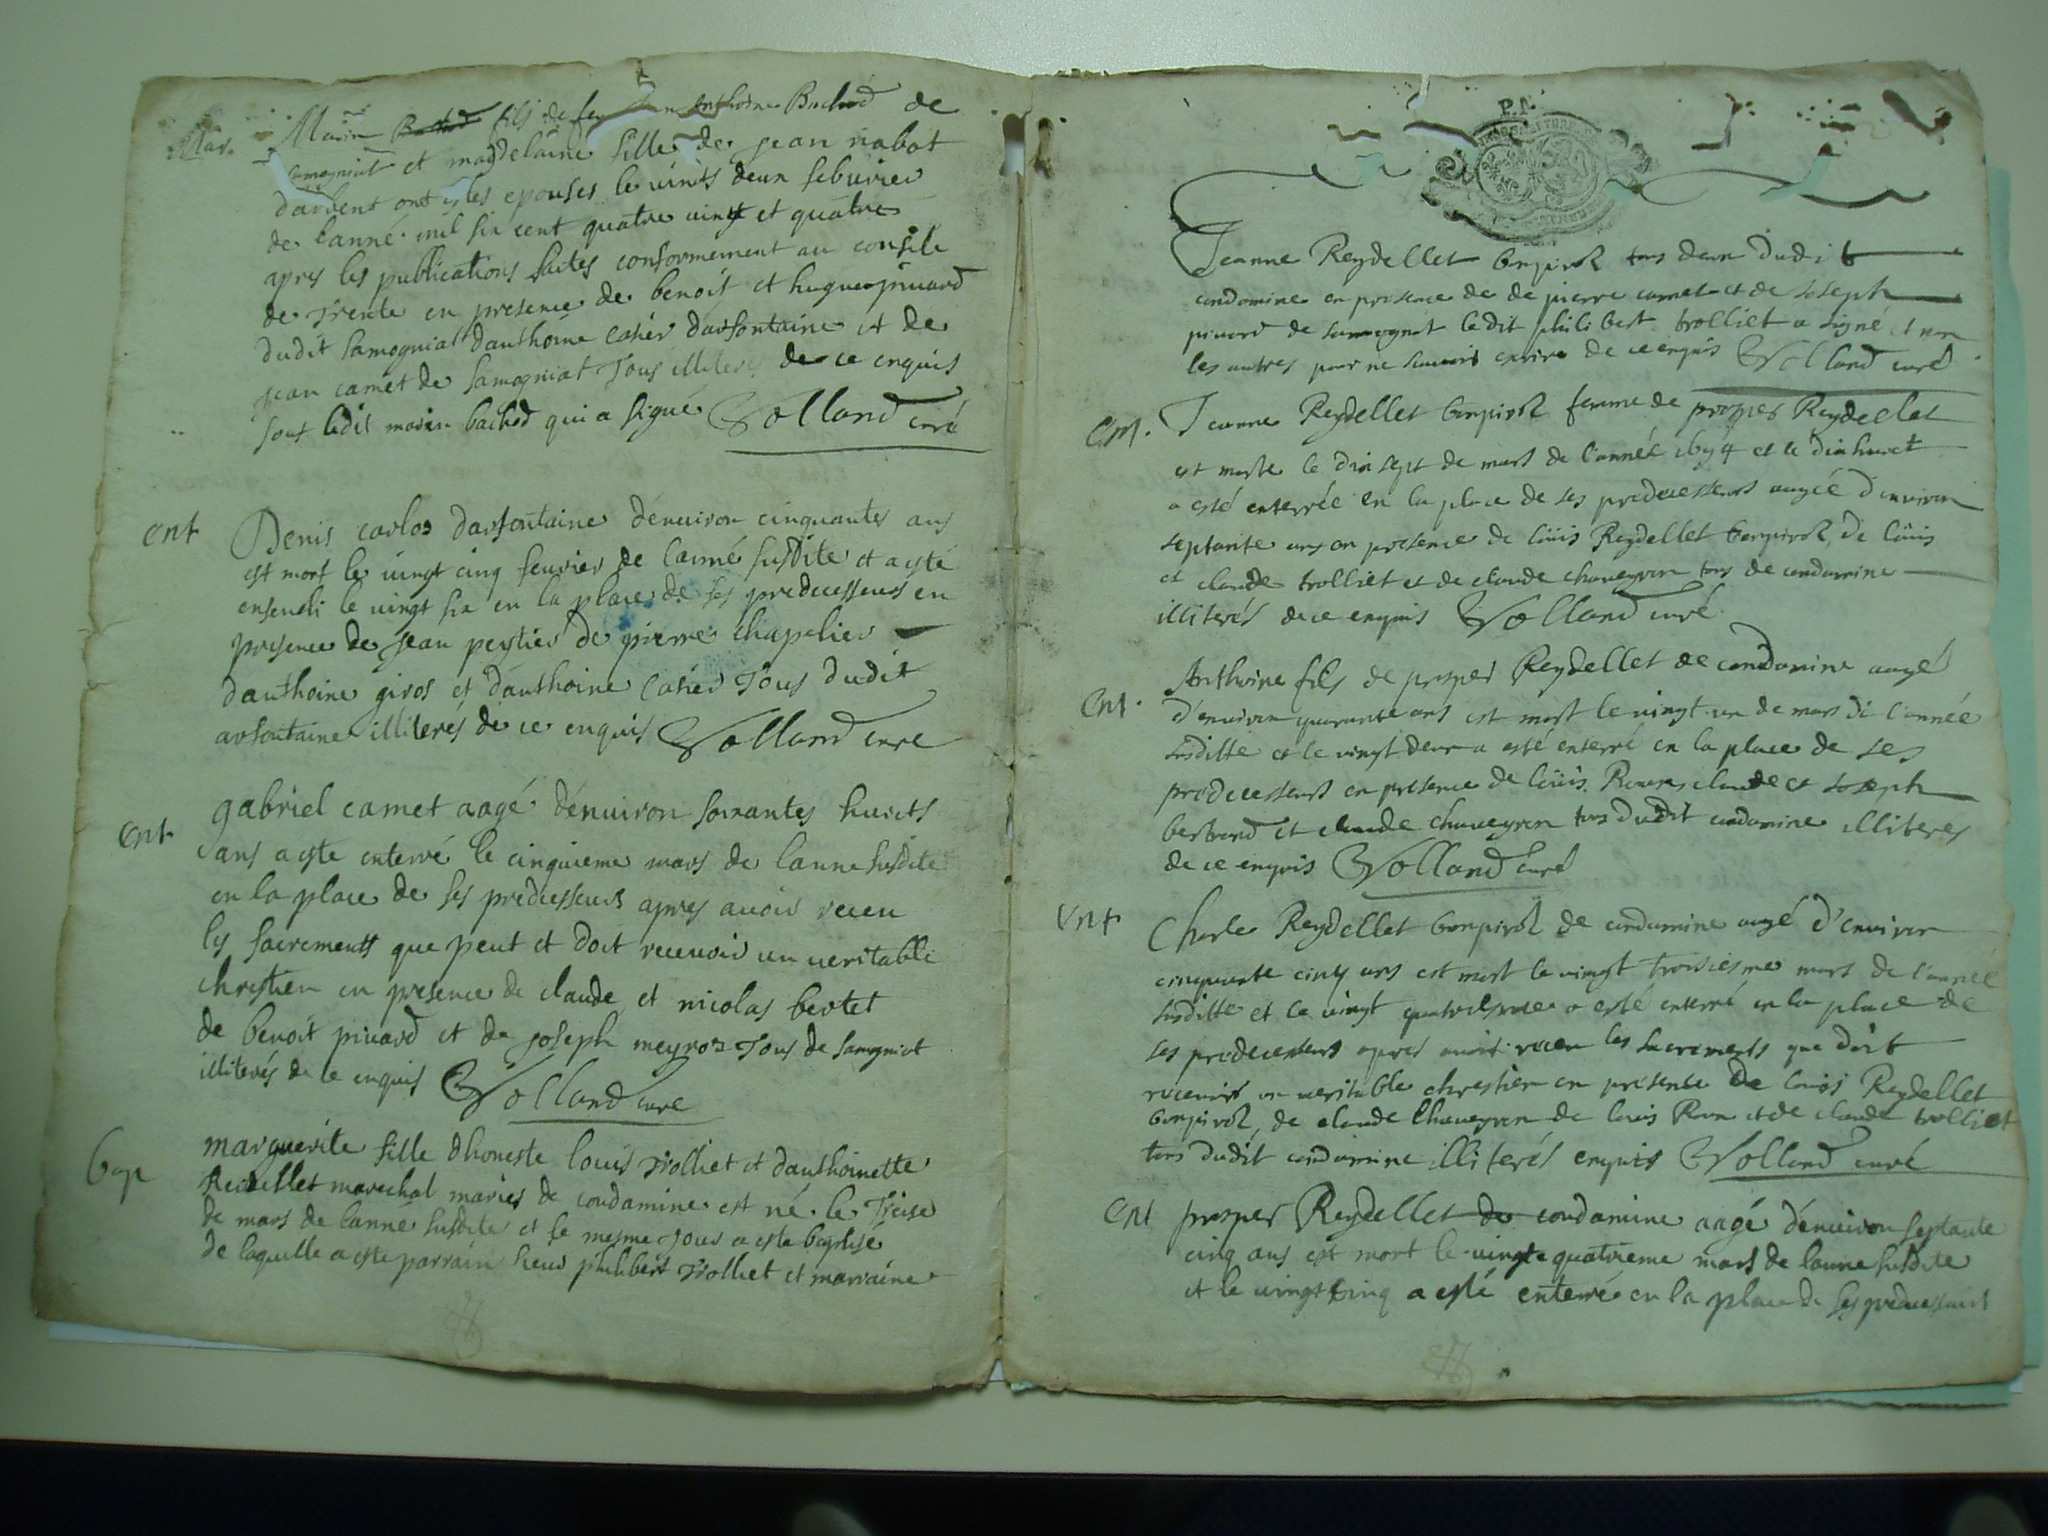 Mar.
Marin fils de feu anthoine Bachod de
samogniat et magdelaine fille de jean nabot
dardent ont estes epouses le vints deux febvrier
de lanné mil six cent quatre vingt et quatre
apres les publications faites conformement au consile
de Trente en presence de benoit et hugue pivard
dudit samogniat danthoine cahier darfontaine et de
jean camet de samogniat Tous illiteres de ce enquis
sous ledit marin bachod qui a signé Volland curé
ent
Denis carloz darfontaine dénuiron cinquantes ans
est mort le vingt cinq feuvrier de lanné susdite et a esté
enseuely le vingt six en la place de ses predecesseurs en
presence de jean perties de pierre chapelier
danthoine giros et danthoine cahier Tous dudit
arfontaine illiterés de ce enquis Volland cure
ent
gabriel camet aagé dénuiron soixantes huicts
ans a este enterré le cinquieme mars de lanne susdite
en la place de ses predecesseurs apres auoir receu
les sacrements que peut et doit receuoir un ueritable
chrestien en presence de claude et nicolas bertet
de benoit pivard et de joseph meyroz Tous de samogniat
illiterés de ce enquis Volland cure
bap
marguerite fille dhoneste louis Trolliet et danthoinette
Reidellet marechal maries de condamine est né le Treise
de mars de lanné susdite et le mesme jour a este baptisé
de laquelle a este parrain sieur philibert Trolliet et marraine
P.P.
Jeanne Reydellet bonpirol tous deux dudit
condamine en presence de de pierre camet et de Joseph
pivard de samognat ledit philibert trolliet a signé et non
les autres pour ne scavoir escrire de ce enquis Volland curé
ent.
Jeanne Reydellet bonpirol femme de prosper Reydellet
est morte le dix sept de mars de l'année 1694 et le dixhuict
a esté enterrée en la place de ses predecesseurs augée d'environ
septante ans en presence de Loüis Reydellet bonpirol, de loüis
et claude trolliet et de claude chaveyron tous de condamine
illiterés de ce enquis Volland curé
Ent.
Anthoine fils de prosper Reydellet de condamine augé
d'environ quarante ans est mort le vingt un de mars de l'année
susditte et le vingt deux a esté enterré en la place de ses
predecesseurs en presence de loüis claude et Joseph
bertrand et claude chaveyron tous dudit condamine illiteres
de ce enquis Volland curé
Ent
Charle Reydellet bonpirol de condamine augé d'environ
cinquante cinq ans est mort le vingt troisiesme mars de l'année
susditte et le vingt quatriesme a esté enterré en la place de
ses predecesseurs apres avoir receu les sacrements que doit
recevoir un veritable chrestien en presence de louis Reydellet
bonpirol, de claude Chaveyron de louis et de claude trolliet
tous dudit condamine illiterés enquis Volland curé
Ent
prosper Reydellet de condamine aagé dénuiron septante
cinq ans est mort le vingte quatrieme mars de lanne susdite
et le uingt cinq a esté enterré en la place de ses predecesseurs